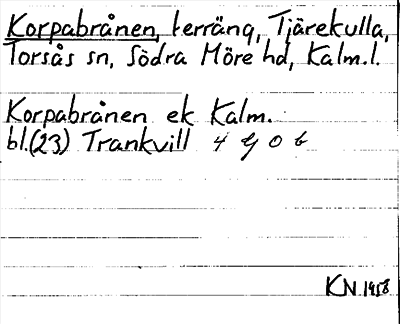 Korpabrånen, terräng, Tjärekulla,
Torsås sn, Södra Möre hd, Kalm.l.
Korpabrånen ek Kalm.
bl.(23) Trankvill 4 G 0 b
KN 1958